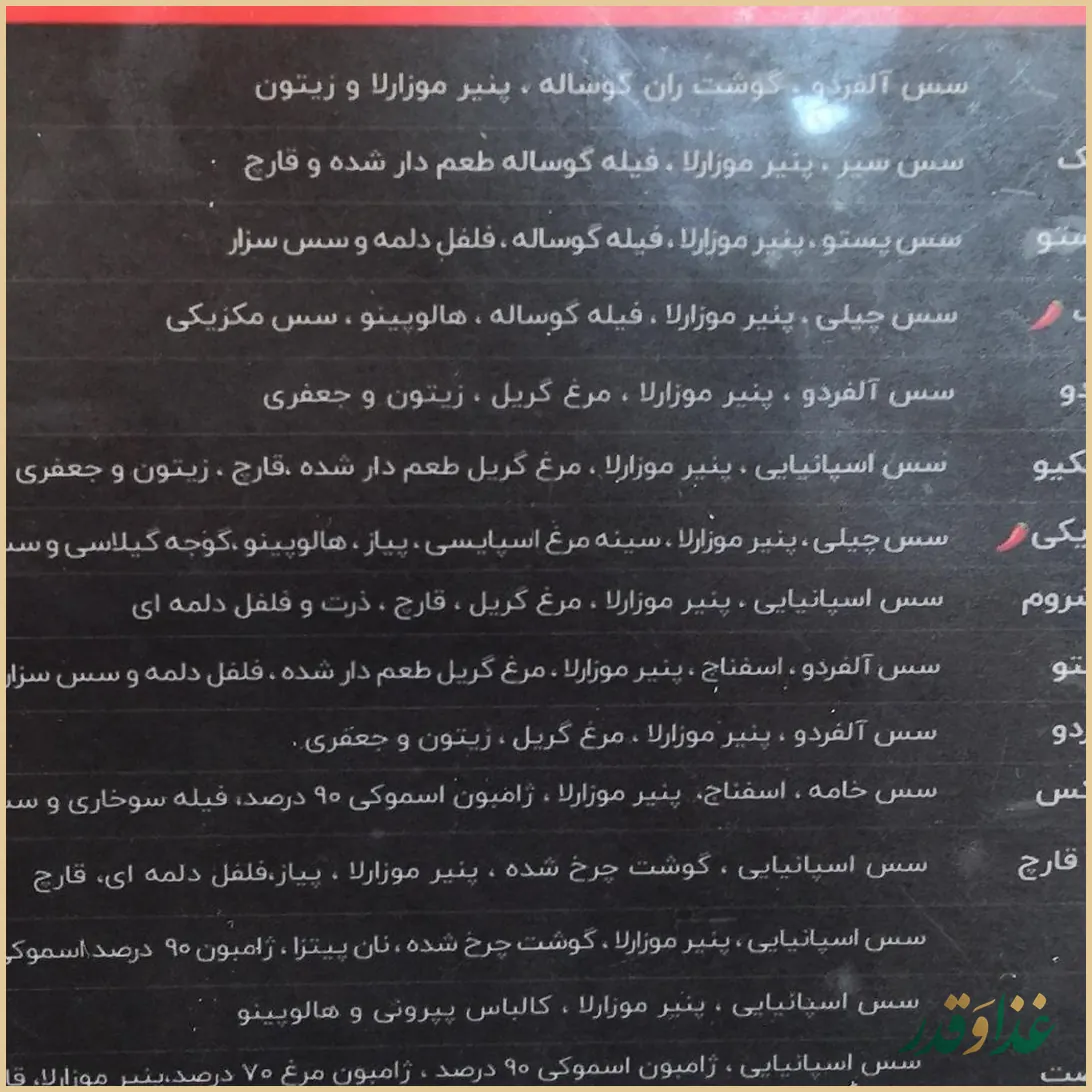 سس آلفردو ، گوشت ران گوساله ، پنیر موزارلا و زیتون
سس سیر ، پنیر موزارلا ، فیله گوساله طعم دار شده و قارچ
سس پستو ، پنیر موزارلا ، فیله گوساله ، فلفل دلمه و سس سزار
سس چیلی ، پنیر موزارلا ، فیله گوساله ، هالوپینو ، سس مکزیکی
سس آلفردو ، پنیر موزارلا ، مرغ گریل ، زیتون و جعفری
سس اسپانیایی ، پنیر موزارلا ، مرغ گریل طعم دار شده ،قارچ ، زیتون و جعفری
سس چیلی ، پنیر موزارلا ، سینه مرغ اسپایسی ، پیاز ، هالوپینو ،گوجه گیلاسی و
سس اسپانیایی ، پنیر موزارلا ، مرغ گریل ، قارچ ، ذرت و فلفل دلمه ای
سس آلفردو ، اسفناج ، پنیر موزارلا ، مرغ گریل طعم دار شده ، فلفل دلمه و سس سزار
سس آلفردو ، پنیر موزارلا ، مرغ گریل ، زیتون و جعفری .
سس خامه ، اسفناج، پنیر موزارلا ، ژامبون اسموکی ۹۰ درصد، فیله سوخاری و
قارچ سس اسپانیایی ، گوشت چرخ شده ، پنیر موزارلا ، پیاز،فلفل دلمه ای، قارچ
سس اسپانیایی ، پنیر موزارلا ، گوشت چرخ شده ، نان پیتزا ، ژامبون ۹۰ درصد اسموکی
سس اسپانیایی ، پنیر موزارلا ، کالباس پپرونی و هالوپینو
سس اسپانیایی ، ژامبون اسموکی ۹۰ درصد ، ژامبون مرغ ۷۰ درصد،پنیر موزارلا،
غذا و قدر